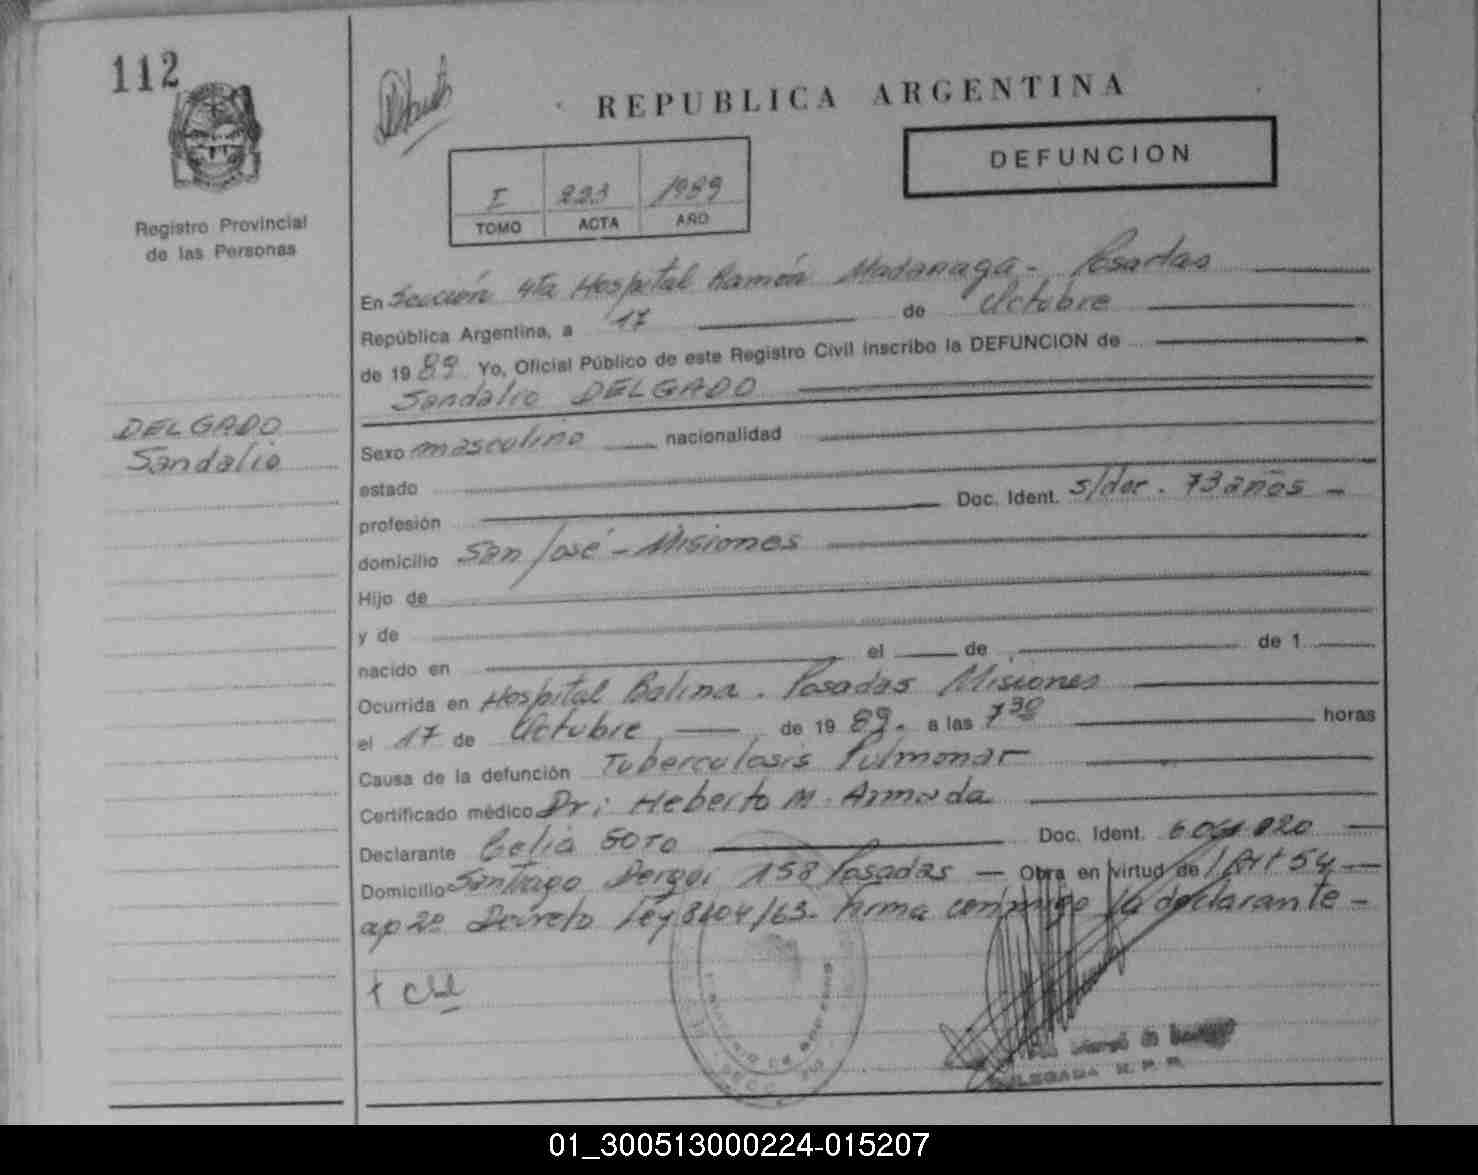 112
REPUBLICA ARGENTINA
DEFUNCION
I 223 1989
TOMO ACTA AÑO
Registro Provincial
de las Personas
DELGADO
Sandalio
En Sección 4ta Hospital Ramón Madariaga - Posadas
República Argentina, a 17 de Octubre
de 1989 Yo, Oficial Público de este Registro Civil inscribo la DEFUNCION de
Sandalio DELGADO
Sexo masculino nacionalidad
estado
profesión Doc. Ident. s/doc. 73 años -
domicilio San José - Misiones
Hijo de
y de
nacido en el de de 1
Ocurrida en Hospital Baliña. Posadas Misiones
el 17 de Octubre de 1989. a las 7 30 horas
Causa de la defunción Tuberculosis Pulmonar
Certificado médico Dr: Heberto M. Armada
Declarante Celia SOTO Doc. Ident.
Domicilio Santiago Derqui 158 Posadas - Obra en virtud de Art 54 -
ap 2º Decreto Ley 8204/63. Firma conmigo la declarante -
DELEGADA R. P. P.
01_300513000224-015207